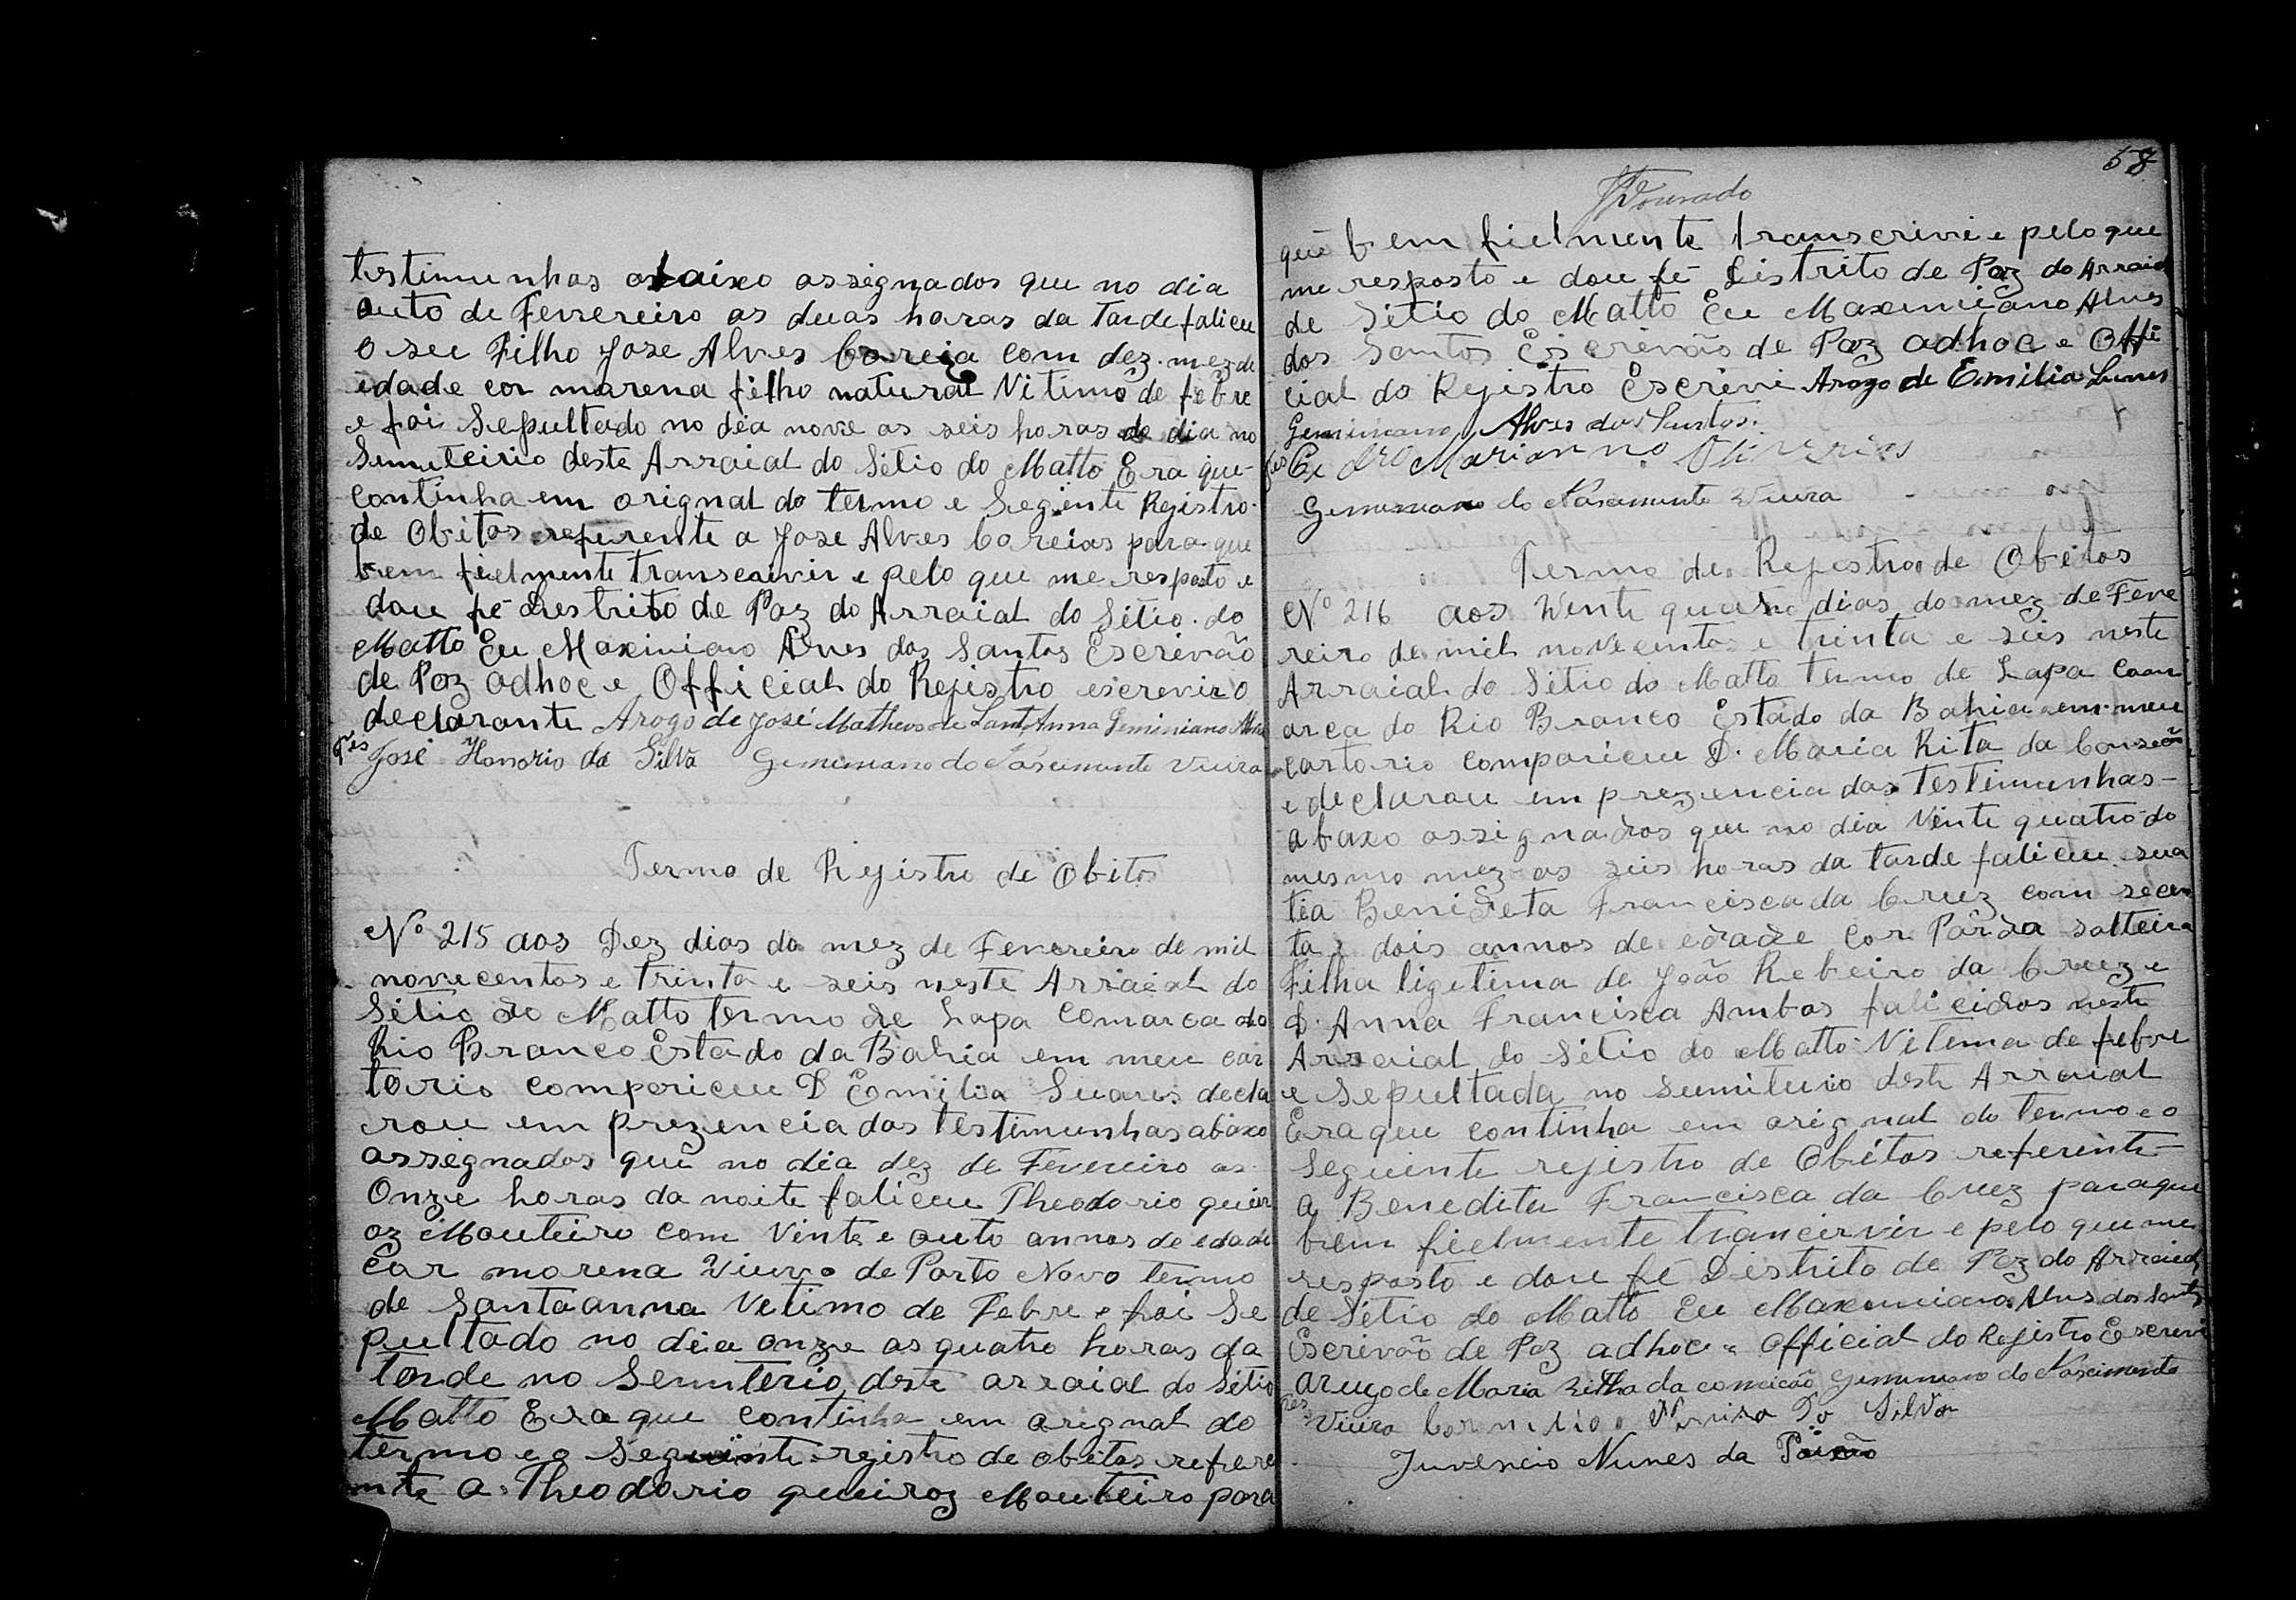 testimunhas abaixo assignados que no dia
outo de Fevrereiro as duas horas da Tarde faliceu
O seu Filho Jose Alves Coreia com dez mez de
idade cor marena filho natural Vitimo de febre
e foi Sepultado no dia nove as seis horas do dia no
Semuteirio deste Arraial do Sitio do Matto Era que
continha em orignal do termo e Seginte Rejistro
de Obitos referente a Jose Alves Coreias para que
bem fielmente transcrivir e pelo que me resposto e
dou fé destrito de Paz do Arraial do Sitio do
Matto Eu Maximiano Alves dos Santos Escrivão
de Paz adhoc e Official do Rejistro escrevir o
declarante Arogo de José Matheus de Sant Anna Geminiano Alves
José Honorio da Silva Geminiano do Nascimento Vieira
Termo de Rejistro de Obitos
Nº 215 aos Dez dias do mez de Fevereiro de mil
novecentos e trinta e seis neste Arraial do
Sitio do Matto termo de Lapa Comarca do
Rio Branco Estado da Bahia em meu car
torio compariceu D Emilia Suares decla
rou em prezencia das testimunhas abaixo
assignados que no dia dez de Fevereiro as
Onze horas da noite faliceu Theodorio queir
oz Monteiro com Vinte e outo annos de edade
Cor morena Viuvo de Porto Novo termo
de Santa anna Vetimo de Febre e foi Se
pultado no dia onze as quatro horas da
tarde no Semiterio deste arraial do Sitio
Matto Era que continha em orignal do
termo e o Seguinte rejistro de obitos refere
nte a Theodorio queiroz Monteiro para
58
Dourado
que bem fielmente transcrivi e pelo que
me resposto e dou fé Distrito de Paz do Arraial
de Sitio do Matto Eu Maximiano Alves
dos Santos Escrevão de Paz adhoc e Offi
cial do Rejistro Escrevi Arogo de Emilia Suares
Geminiano Alves dos Santos
Marianno
Geminiano do Nascimento Vieira
Termo de Rejistro de Obitos
Nº 216 aos Vente quatro dias do mez de Feve
reiro de mil novecentos e trinta e seis neste
Arraial do Sitio do Matto Termo de Lapa Com
arca do Rio Branco Estado da Bahia em meu
cartorio compariceu D. Maria Rita da Conseão
e declarou em prezencia das testimunhas
abaxo assignados que no dia Vente quatro do
mesmo mez as seis horas da tarde faliceu sua
tia Benideta Francisca da Cruz com secen
ta e dois annos de edade Cor Parda solteira
Filha ligetima de João Rebeiro da Cruz e
D. Anna Francisca Ambos falicidos neste
Arraial do Sitio do Matto Vitima de febre
e Sepultada no Sumiturio deste Arraial
Era que continha em orignal do termo e o
Seguinte rejistro de Obitos referente
a Benedita Francisca da Cruz para que
bem fielmente trancirvir e pelo que me
resposto e dou fé Distrito de Paz do Arraial
de Sitio do Matto Eu Maximiano Alves dos Santos
Escrivão de Paz adhoc e Official do Rejistro Escrevi
arugo de Maria Ritha da concicão Geminiano do Nascimento
Vieira da Silva
Juvencio Nunes da Paixão